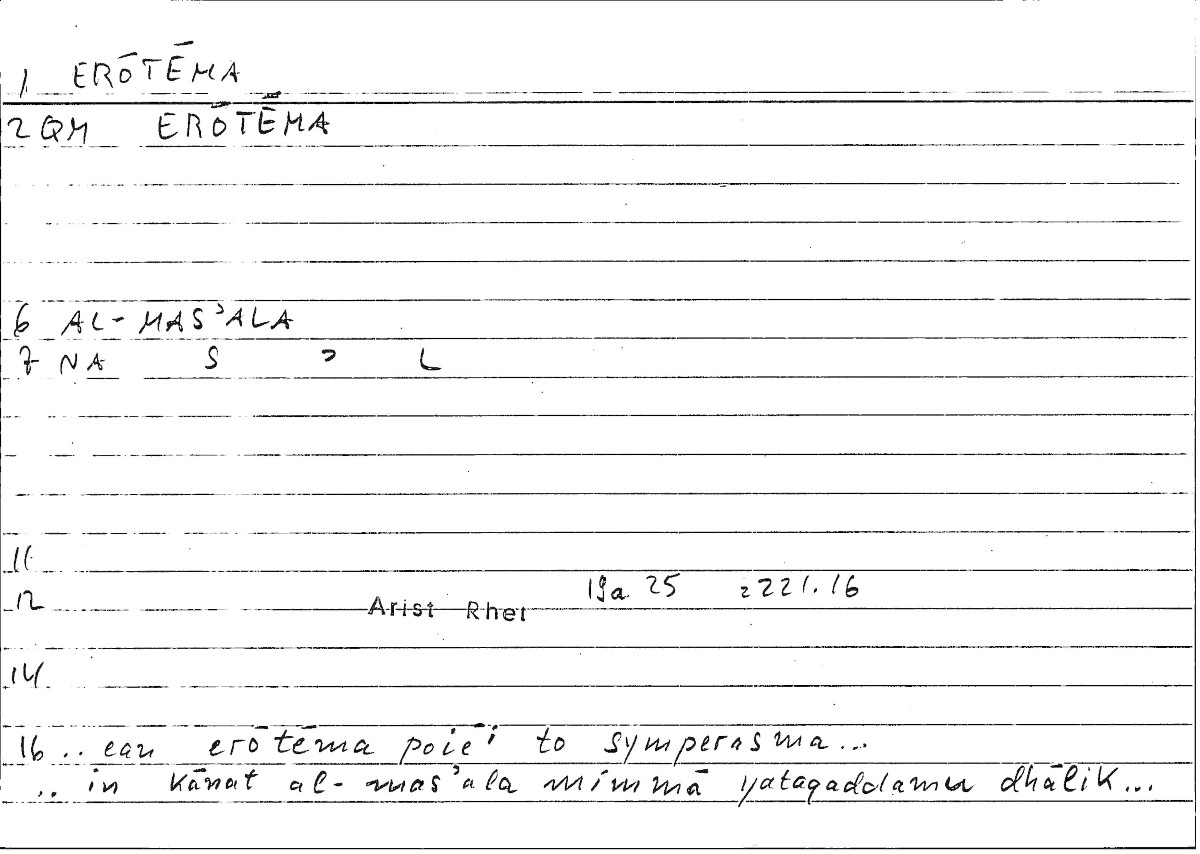 1 ERŌTĒMA
2 QM ERŌTĒMA
6 AL-MASʾALA
7 NA S ʾ L
11
12 Arist Rhet 19a 25 221.16
14
16 .. ean erōtēma poiēi to symperasma...
.. in kānat al-masʾala mimmā yataqaddamu dhālik...